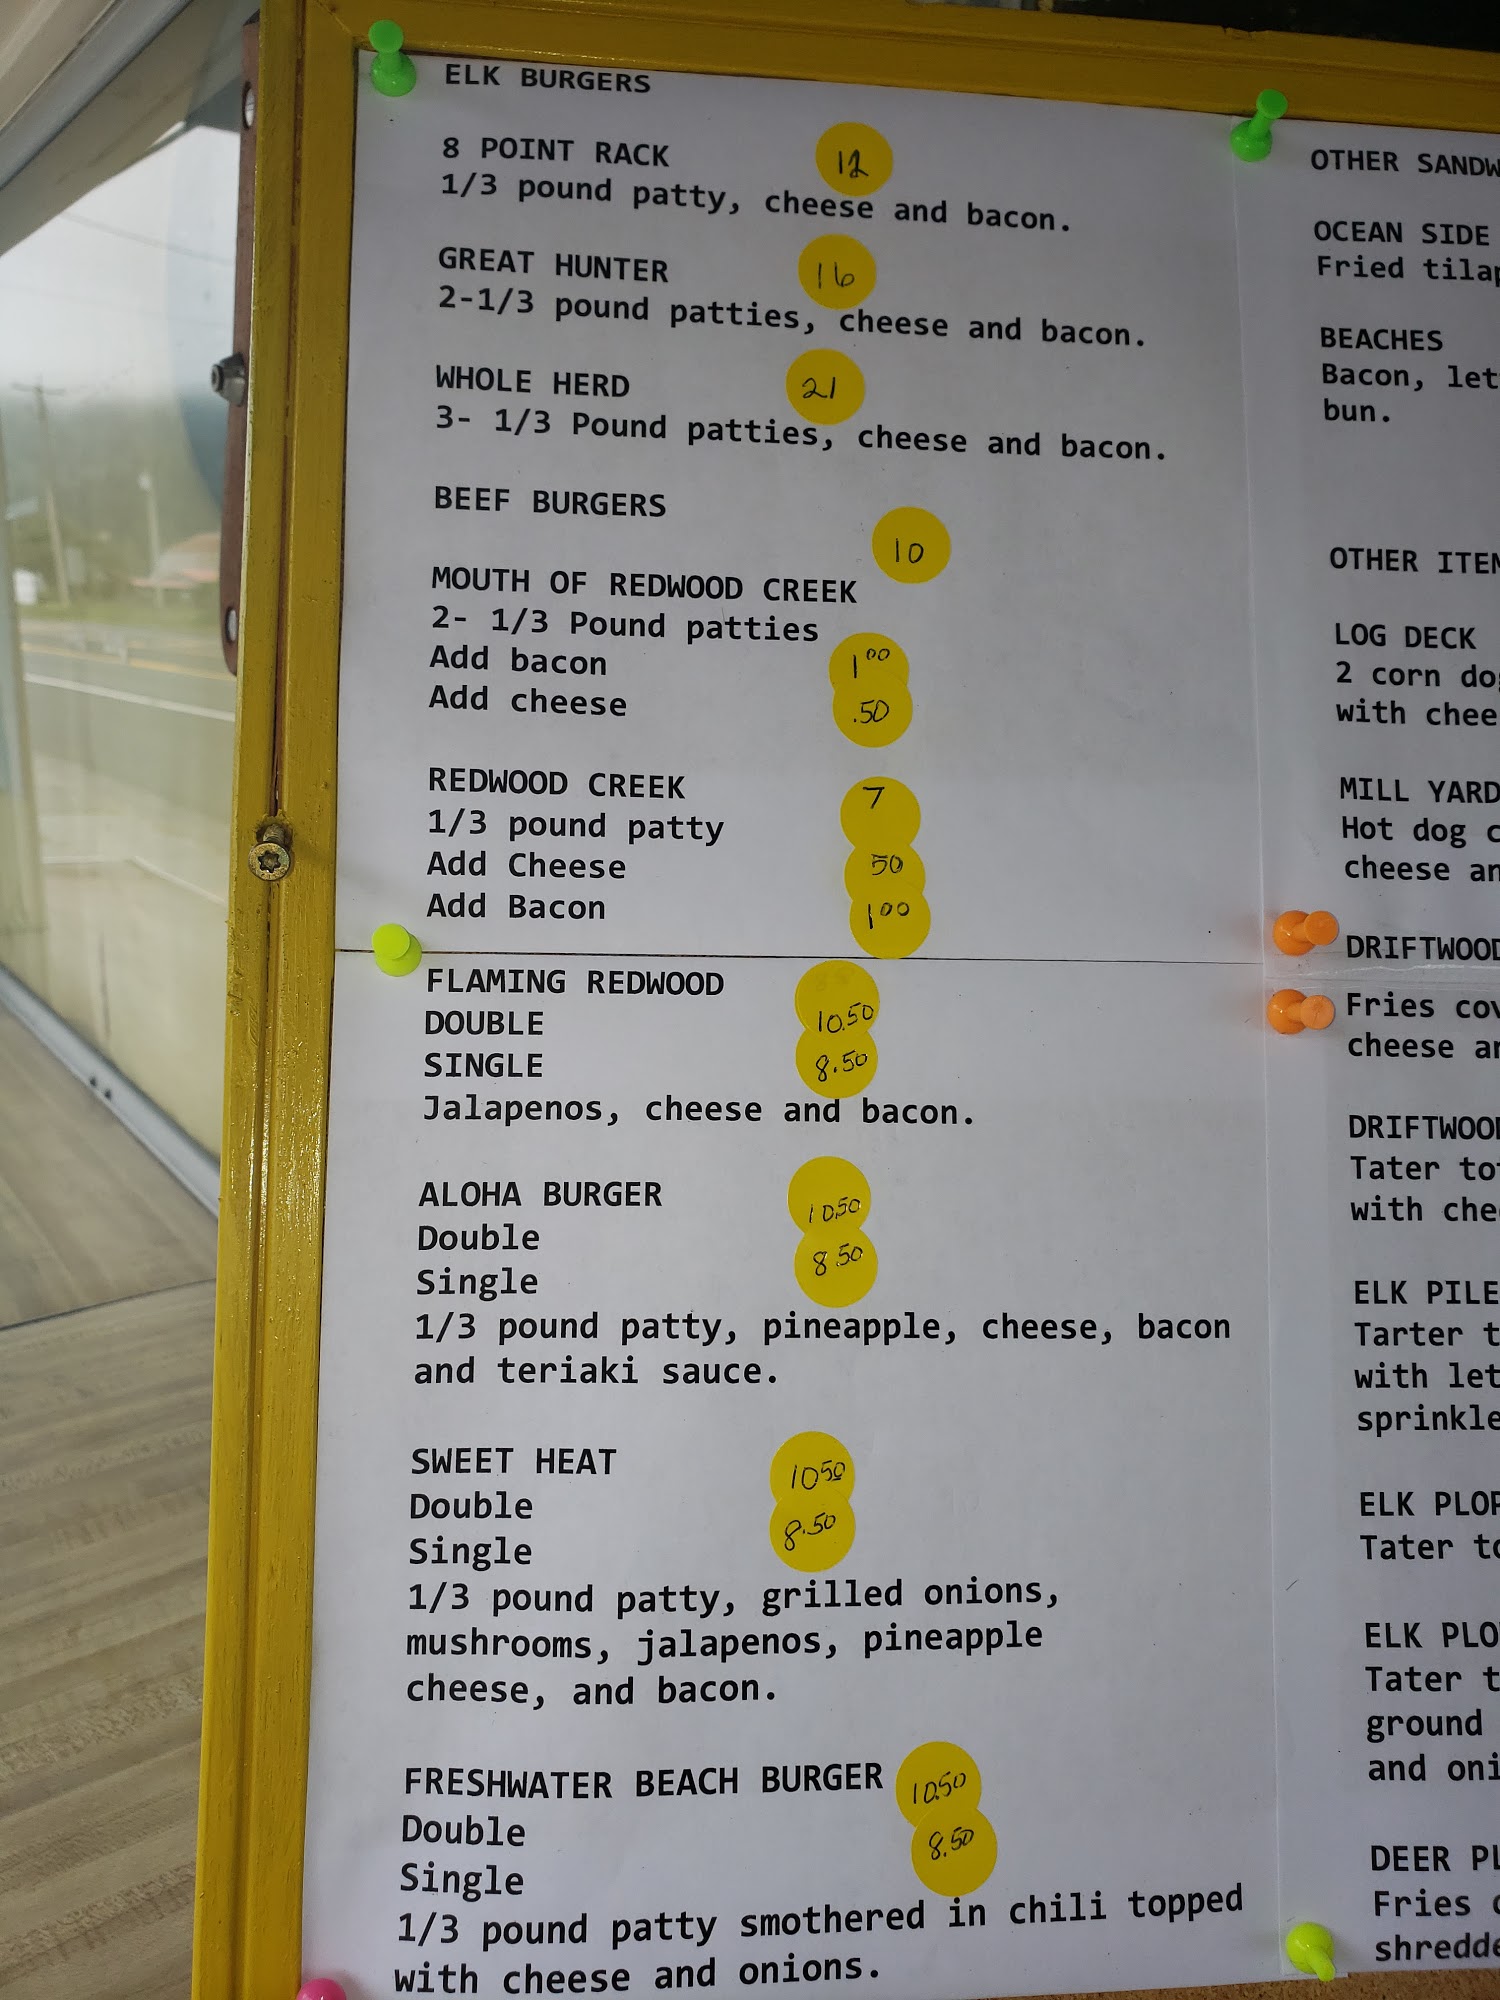 ELK BURGERS
8 POINT RACK 12
1/3 pound patty, cheese and bacon.
GREAT HUNTER 16
2-1/3 pound patties, cheese and bacon.
WHOLE HERD 21
3- 1/3 Pound patties, cheese and bacon.
BEEF BURGERS
10
MOUTH OF REDWOOD CREEK
2- 1/3 Pound patties
Add bacon 1.00
Add cheese .50
REDWOOD CREEK 7
1/3 pound patty
Add Cheese 50
Add Bacon 1.00
FLAMING REDWOOD
DOUBLE 10.50
SINGLE 8.50
Jalapenos, cheese and bacon.
ALOHA BURGER
Double 10.50
Single 8.50
1/3 pound patty, pineapple, cheese, bacon
and teriaki sauce.
SWEET HEAT
Double 10.50
Single 8.50
1/3 pound patty, grilled onions,
mushrooms, jalapenos, pineapple
cheese, and bacon.
FRESHWATER BEACH BURGER
Double 10.50
Single 8.50
1/3 pound patty smothered in chili topped
with cheese and onions.
OTHER
OCEAN SIDE
Fried
BEACHES
Bacon,
bun.
OTHER
LOG DECK
2 corn
with
MILL YARD
Hot dog
cheese
DRIFTWOOD
Fries
cheese
Tater
with
ELK PILE
Tarter
with
ELK
Tater
ELK
Tater
ground
and
DEER
Fries